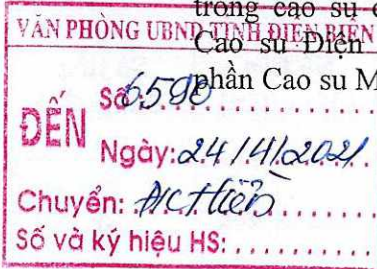 trong cao su
VĂN PHÒNG UBND TỈNH ĐIỆN BIÊN
Cao su Điện
phần Cao su M
ĐẾN
Số: 6590
Ngày: 24/4/2021
Chuyển: Đ/c Hiền
Số và ký hiệu HS: